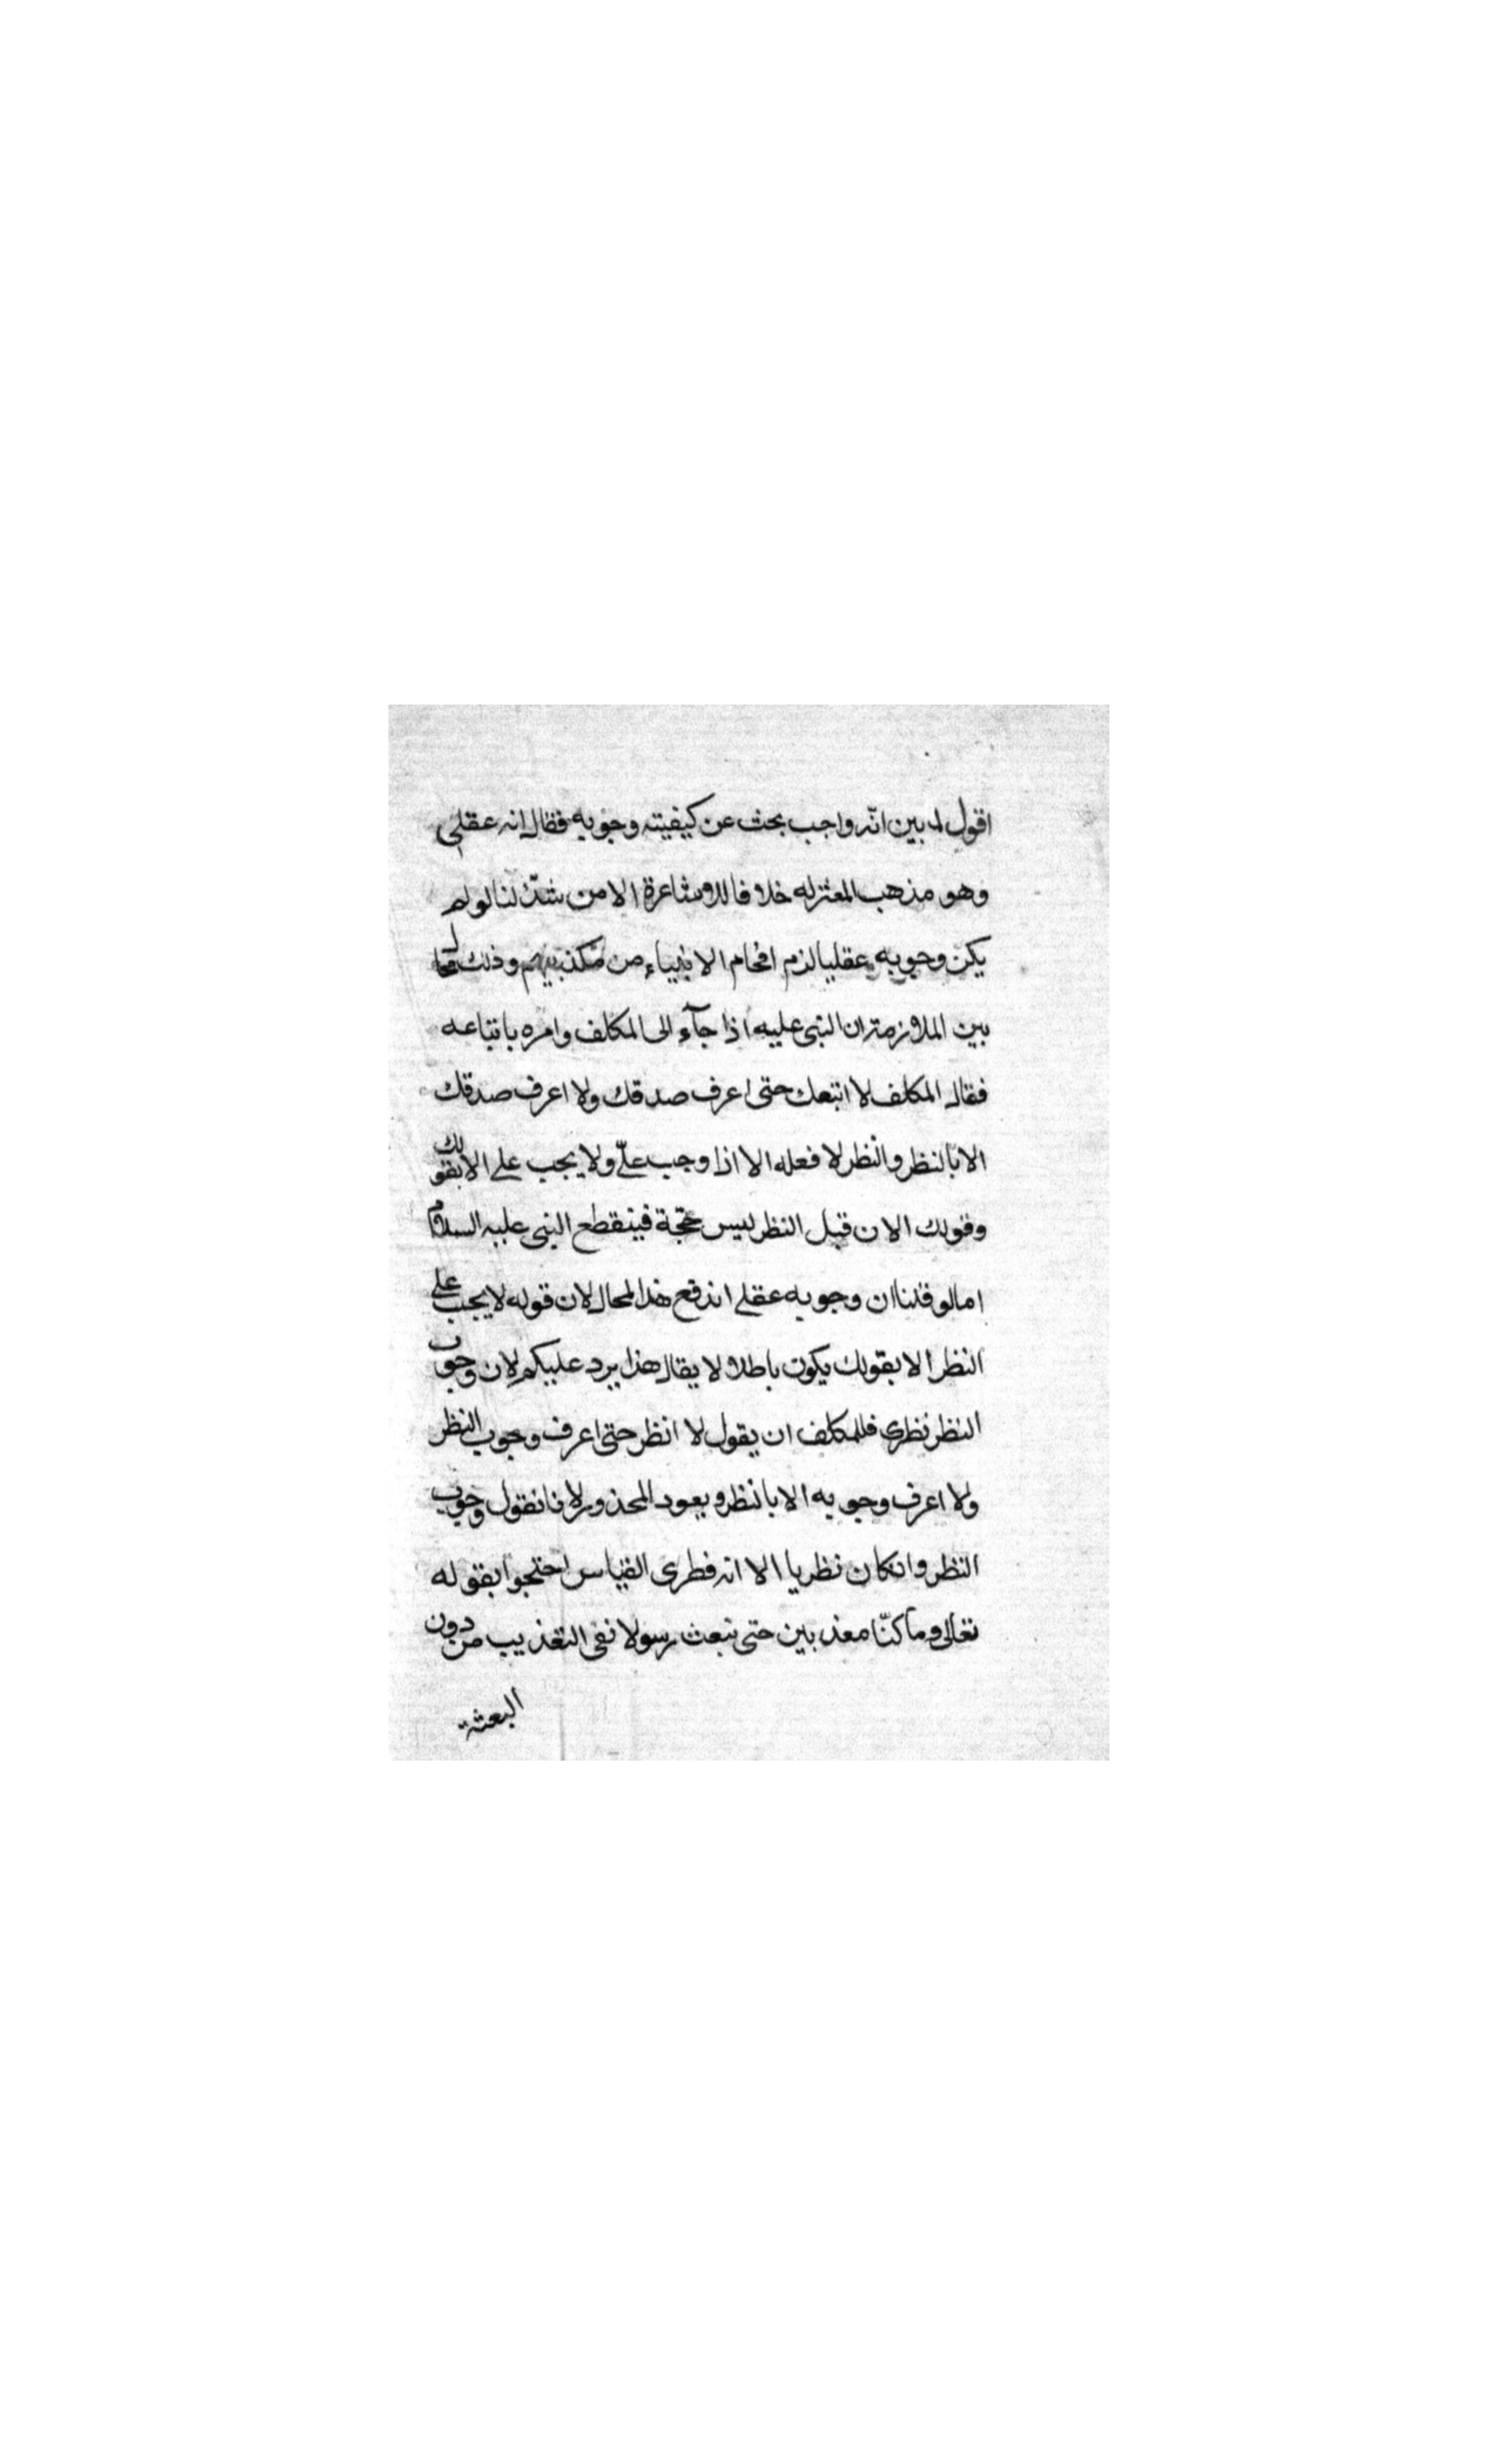 اقول لما بين انّه واجب بحث عن كيفيته وجوبه فقال انه عقلي
وهو مذهب المعتزله خلافا للاشاعرة الا من شذّ لنا لو لم
يكن وجوبه عقليا لزم افحام الانبياء من مكذبيهم وذلك
بين الملازمة ان النبى عليه اذا جآء الى المكلف وامره باتباعه
فقال المكلف لا اتبعك حتى اعرف صدقك ولا اعرف صدقك
الا بالنظر والنظر لا فعله الا اذا وجب علىّ ولا يجب على الا بقولك
وقولك الان قبل النظر ليس حجّة فينقطع النبى عليه السلام
اما لو قلنا ان وجوبه عقلى اندفع هذا المحال لان قوله لا يجب على
النظر الا بقولك يكون باطلا لا يقال هذا يرد عليكم لان وجوب
النظر نظرى فللمكلف ان يقول لا انظر حتى اعرف وجوب النظر
ولا اعرف وجوبه الا بالنظر ويعود المحذور لانا نقول وجوب
النظر وانكان نظريا الا انه فطرى القياس احتجوا بقوله
تعالى وما كنّا معذبين حتى نبعث رسولا نفى التعذيب من دون
البعثة